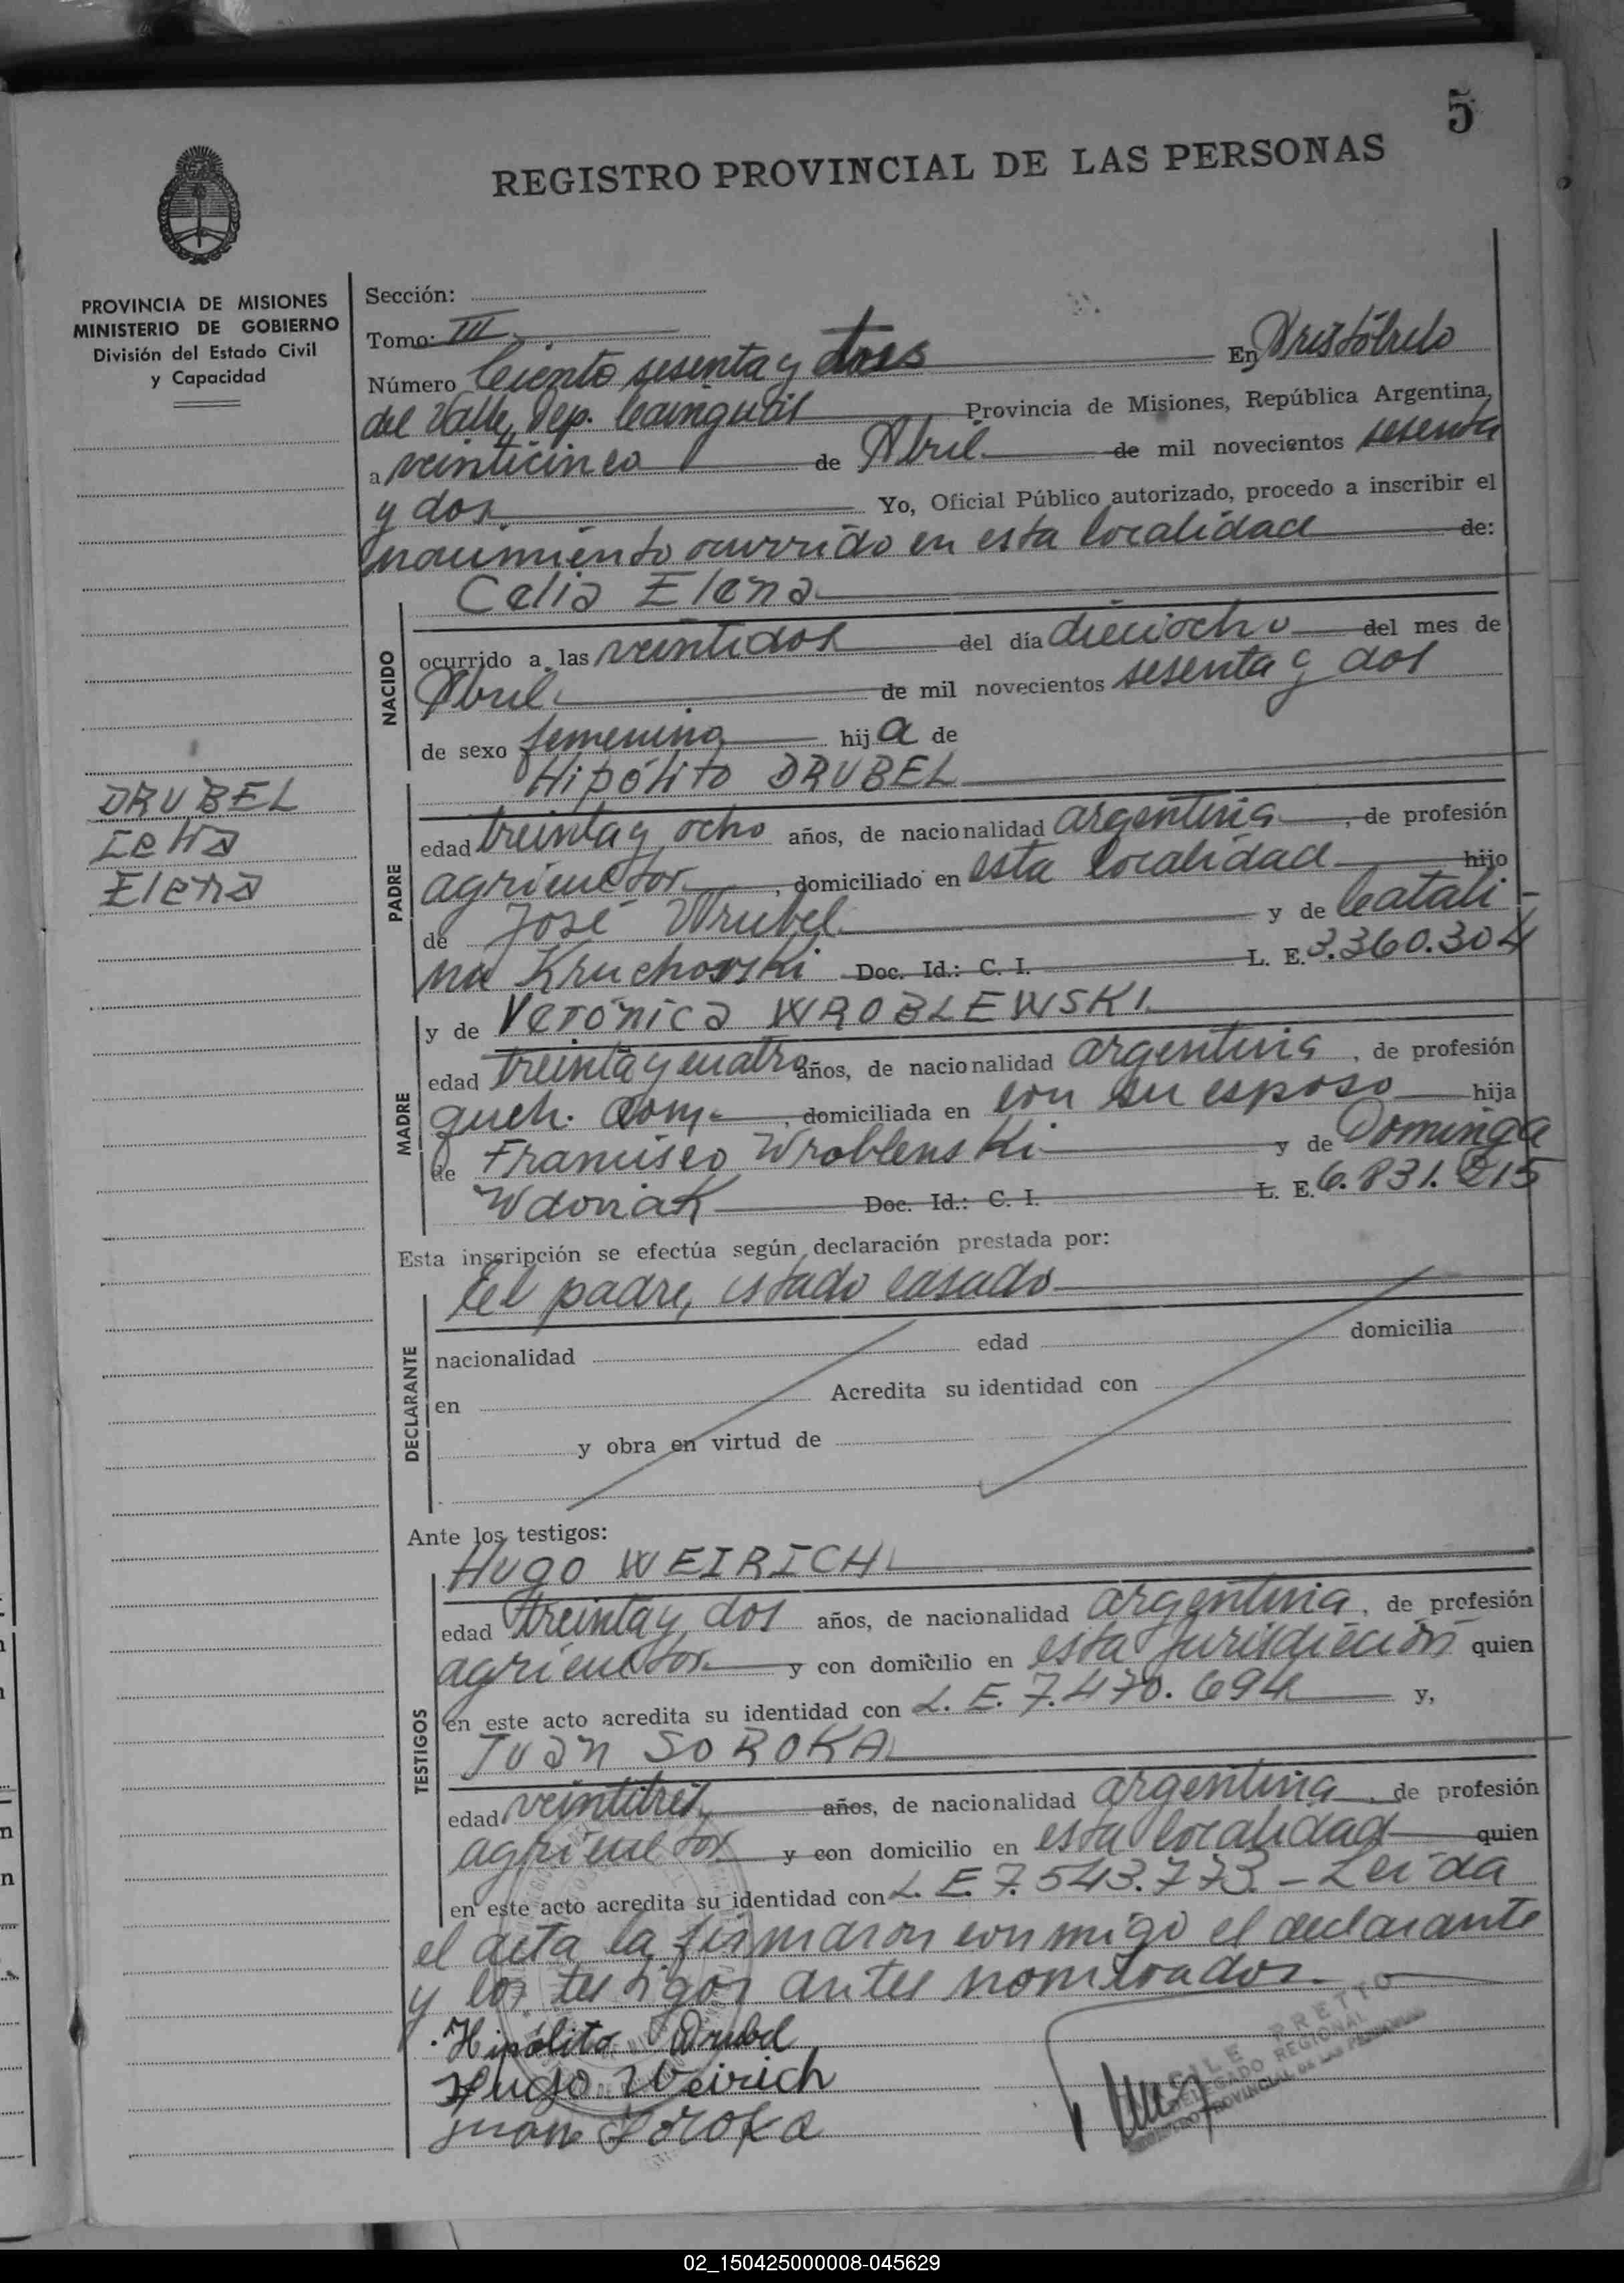 5
REGISTRO PROVINCIAL DE LAS PERSONAS
PROVINCIA DE MISIONES
MINISTERIO DE GOBIERNO
División del Estado Civil
y Capacidad
Sección:
Tomo: III
Número Ciento sesenta y En Aristóbulo
del Valle, Dep. Cainguás Provincia de Misiones, República Argentina,
a veinticinco de Abril de mil novecientos sesenta
y dos Yo, Oficial Público autorizado, procedo a inscribir el
nacimiento ocurrido en esta localidad de:
Celia Elena
NACIDO
ocurrido a las veintidos del día dieciocho del mes de
Abril de mil novecientos sesenta y dos
de sexo femenino hija de
DRUBEL
Celia
Elena
PADRE
Hipólito DRUBEL
edad treinta y ocho años, de nacionalidad argentina, de profesión
agricultor, domiciliado en esta localidad hijo
de José Wrubel y de Catali-
na Kruchowski Doc. Id.: C. I. L. E. 3.360.304
MADRE
y de Verónica WROBLEWSKI
edad treinta y cuatro años, de nacionalidad argentina, de profesión
queh. dom., domiciliada en con su esposo hija
de Francisco Wroblenski y de Dominga
Wdoviak Doc. Id.: C. I. L. E. 6.831.215
Esta inscripción se efectúa según declaración prestada por:
el padre, estado casado
DECLARANTE
nacionalidad edad domicilia
en Acredita su identidad con
y obra en virtud de
Ante los testigos:
TESTIGOS
Hugo WEIRICH
edad treinta y dos años, de nacionalidad argentina, de profesión
agricultor y con domicilio en esta jurisdicción quien
en este acto acredita su identidad con L. E. 7.470.694 y,
Juan SOROKA
edad veintitres años, de nacionalidad argentina, de profesión
agricultor y con domicilio en esta localidad quien
en este acto acredita su identidad con L. E. 7.543.773.- Leida
el acta la firmaron conmigo el declarante
y los testigos antes nombrados.
Hipólito Wrubel
Hugo Weirich
Juan Soroka
PRETTO
DELEGADO REGIONAL
REGISTRO PROVINCIAL DE LAS PERSONAS
02_150425000008-045629